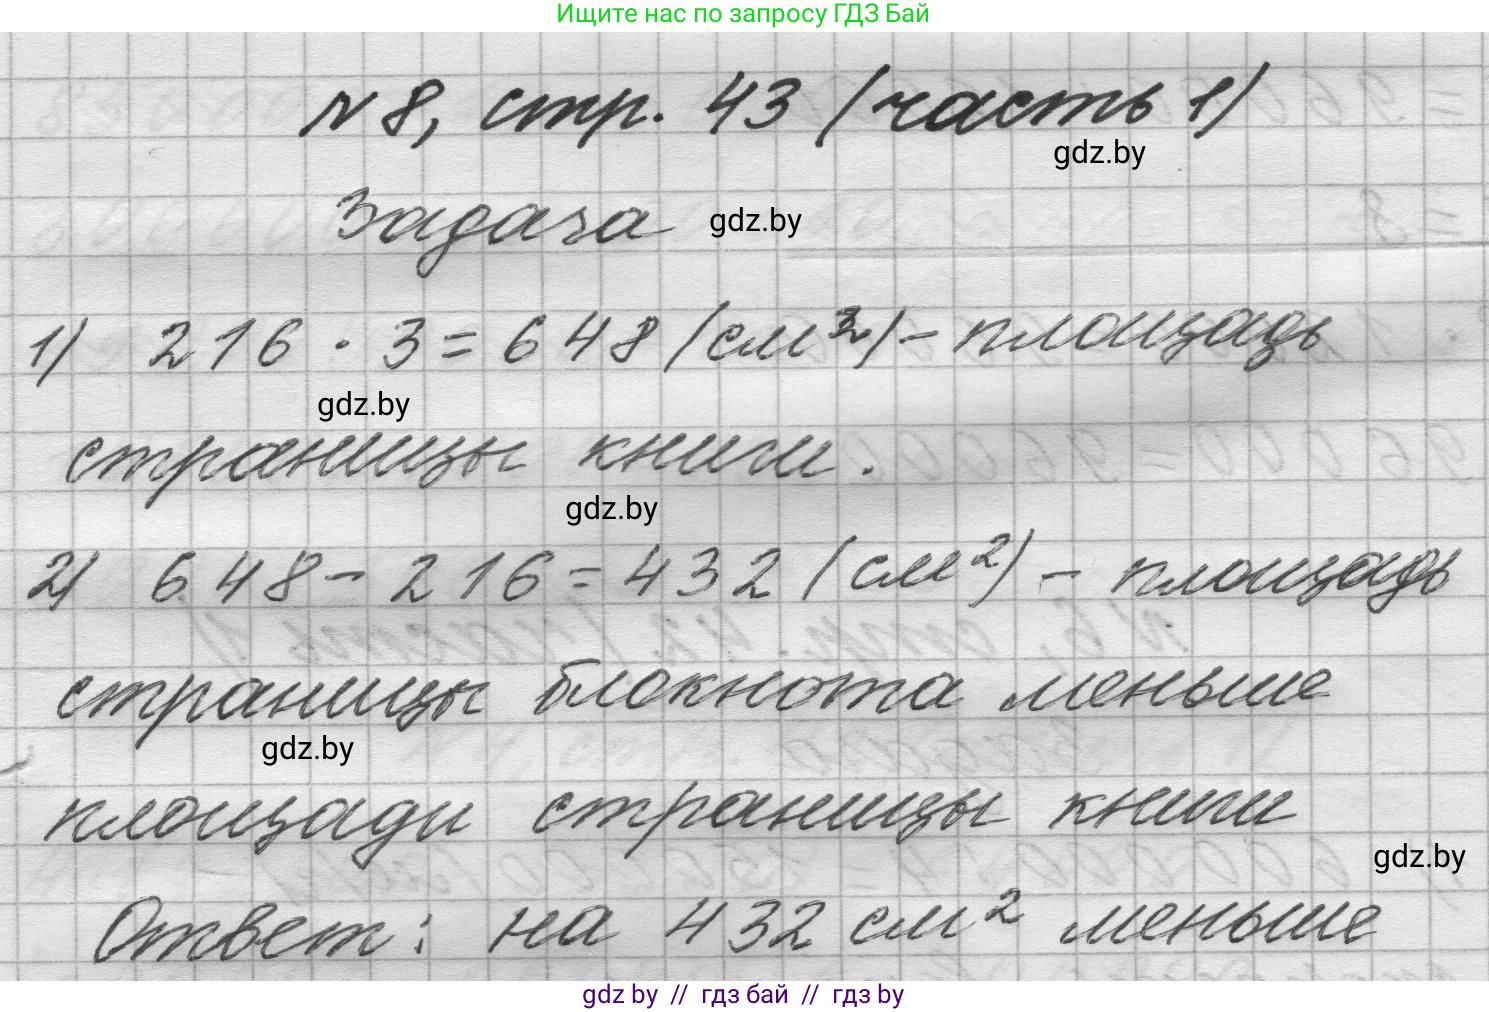 Ищите нас по запросу ГДЗ Бай
№ 8, стр. 43 (часть 1)
gdz.by
Задача gdz.by
1) 216 · 3 = 648 (см²) – площадь
gdz.by
страницы книги.
gdz.by
2) 648 – 216 = 432 (см²) – площадь
страницы блокнота меньше
gdz.by
площади страницы книги
gdz.by
Ответ: на 432 см² меньше
gdz by // гдз бай // гдз by